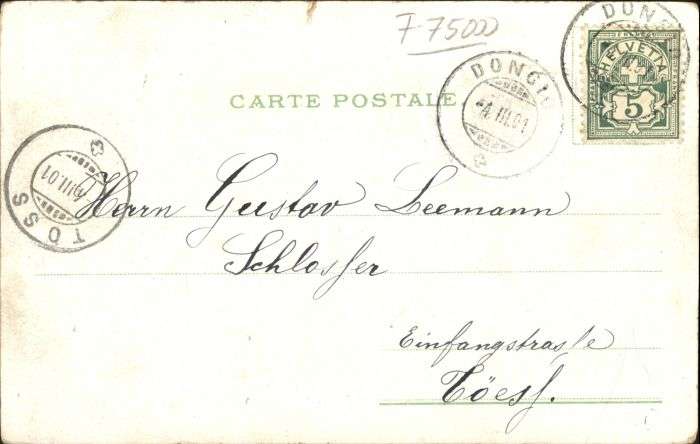 F 75000
DONGIO
4.III.01
DON
HELVETIA
5
CARTE POSTALE
TÖSS
III.01
Herrn Gustav Leemann
Schlosser
Einfangstrasse
Töess.